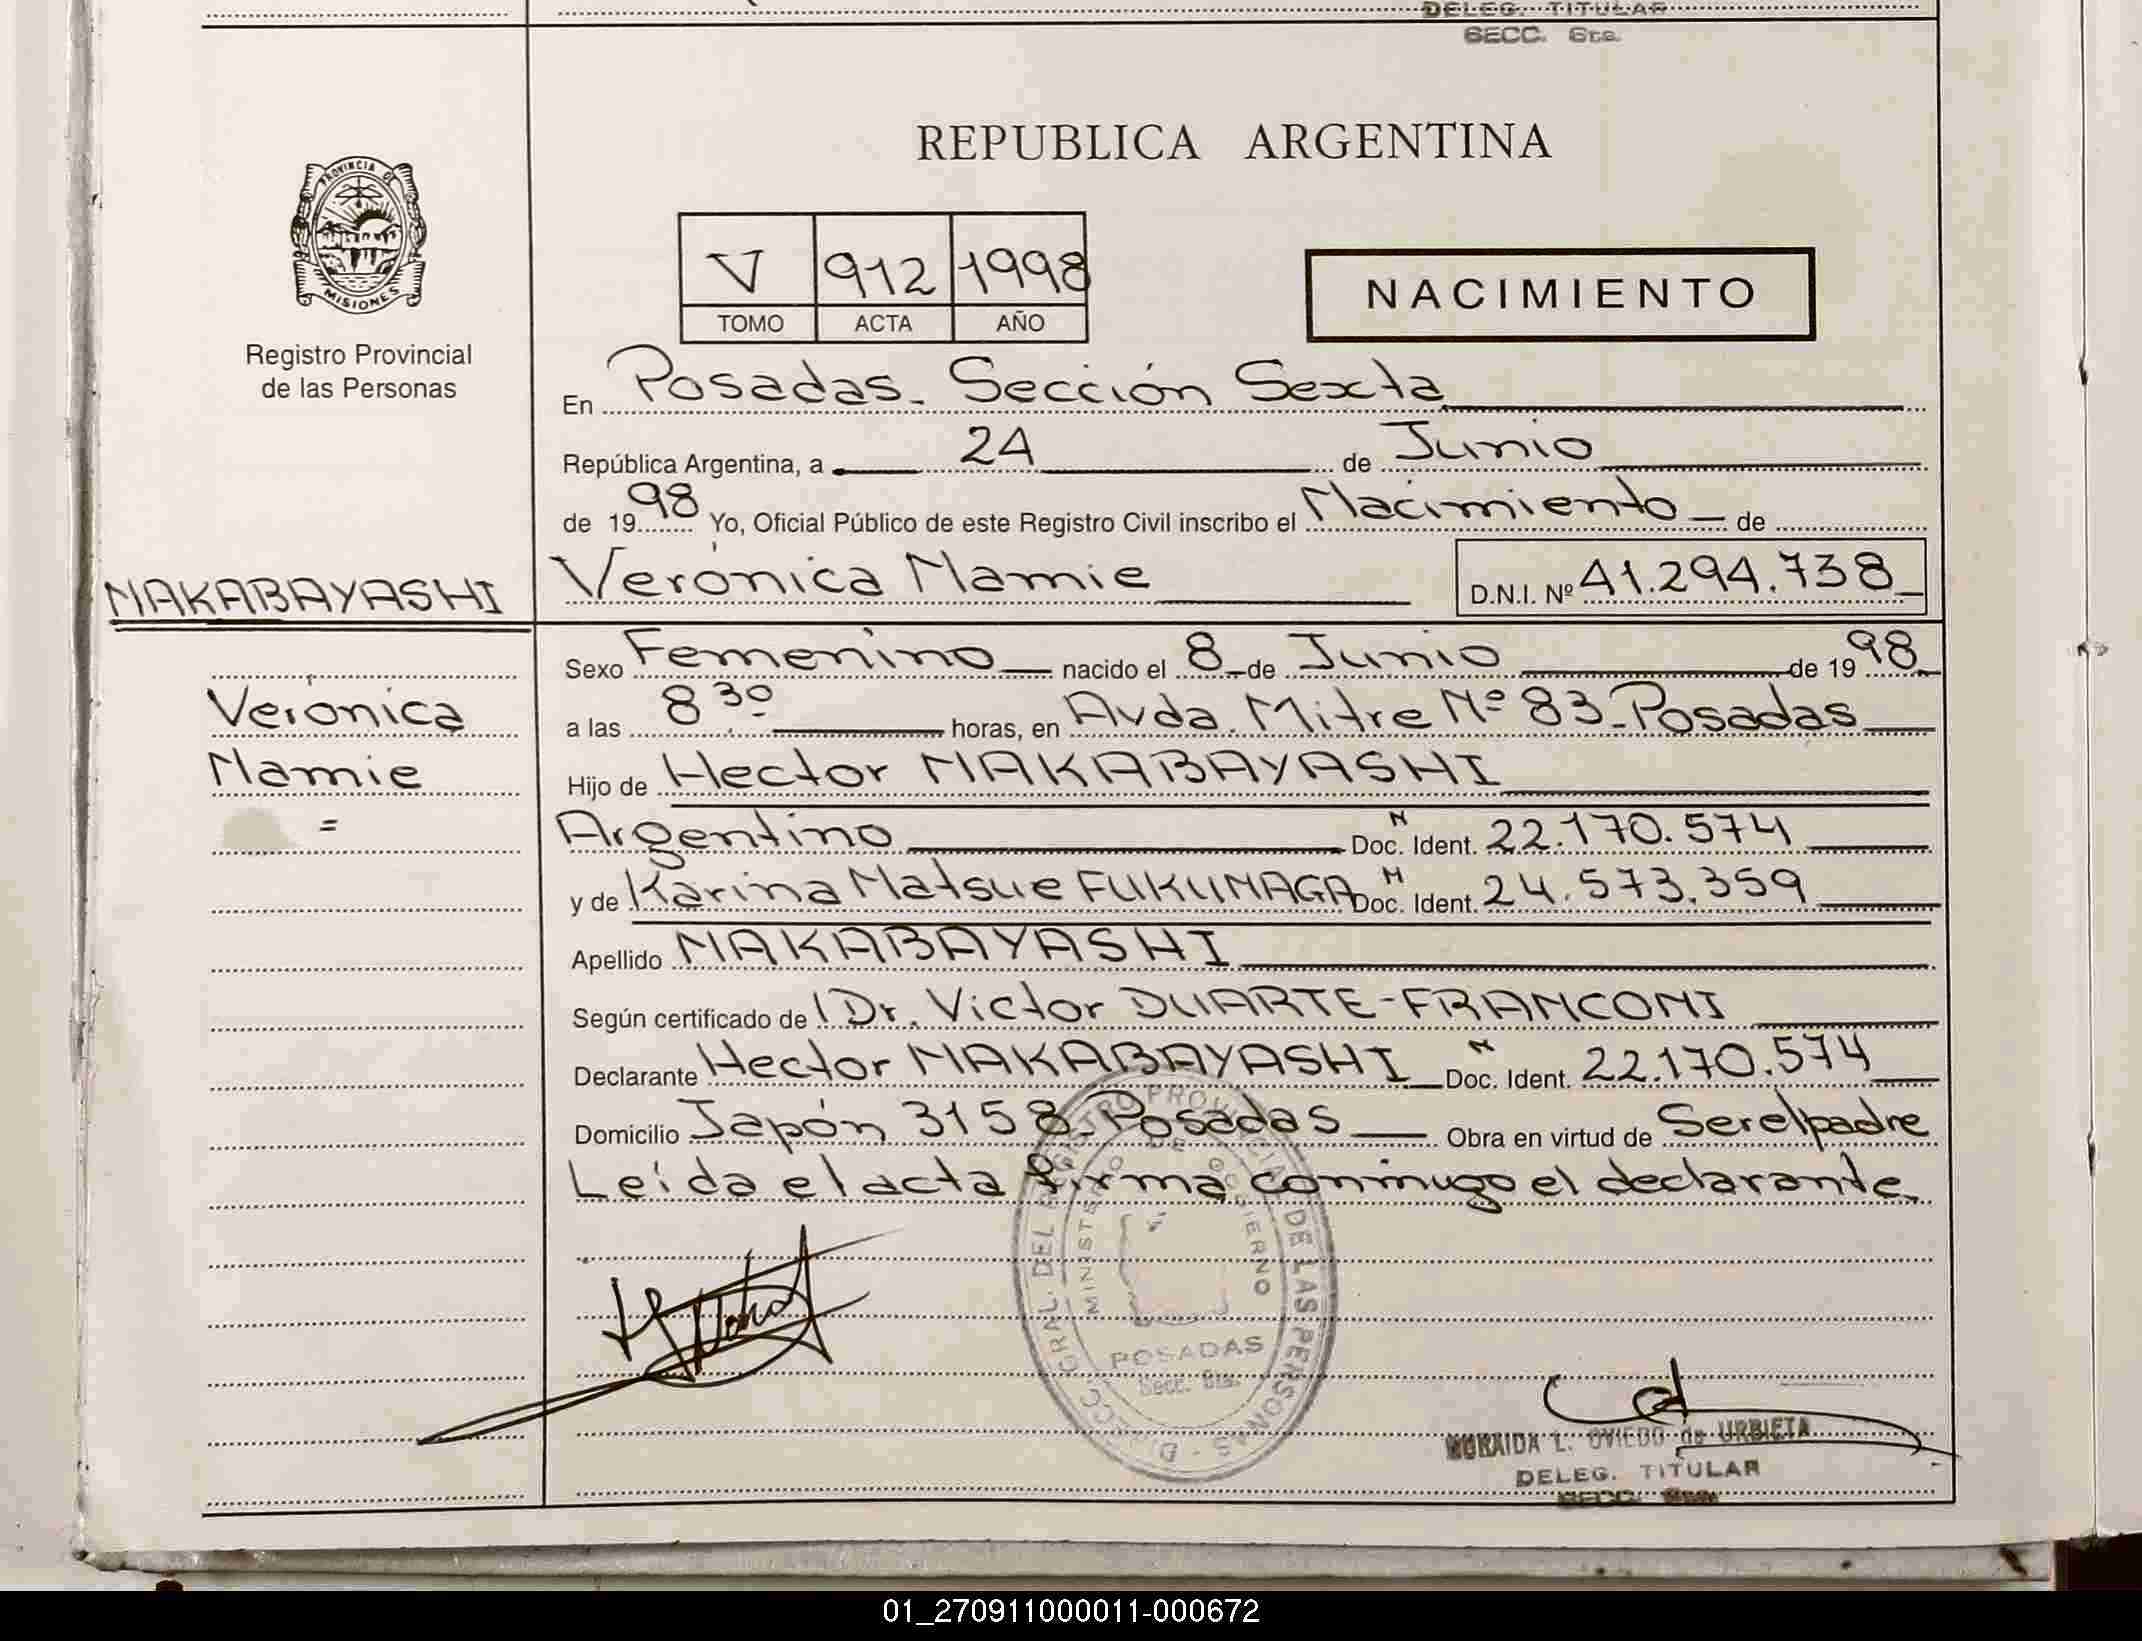 DELEG. TITULAR
SECC. 6ta.
REPUBLICA ARGENTINA
PROVINCIA DE
MISIONES
Registro Provincial
de las Personas
V 912 1998
TOMO ACTA AÑO
NACIMIENTO
En Posadas - Sección Sexta
República Argentina, a 24 de Junio
de 1998 Yo, Oficial Público de este Registro Civil inscribo el Nacimiento de
NAKABAYASHI
Verónica Namie D.N.I. Nº 41.294.738
Sexo Femenino nacido el 8 de Junio de 1998
Verónica
a las 8 30 horas, en Avda. Mitre Nº 83 - Posadas
Namie
Hijo de Hector NAKABAYASHI
=
Argentino N Doc. Ident. 22.170.574
y de Karina Matsue FUKUNAGA N Doc. Ident. 24.573.359
Apellido NAKABAYASHI
Según certificado de Dr. Victor DUARTE-FRANCONI
Declarante Hector NAKABAYASHI N Doc. Ident. 22.170.574
Domicilio Japón 3158 - Posadas Obra en virtud de Ser el padre
Leída el acta firma conmigo el declarante.
DIRECC. GRAL. DEL REGISTRO PROVINCIAL DE LAS PERSONAS -
MINISTERIO DE GOBIERNO
POSADAS
Secc. 6ta.
L. OVIEDO de URBIETA
DELEG. TITULAR
SECC. 6ta.
01_270911000011-000672